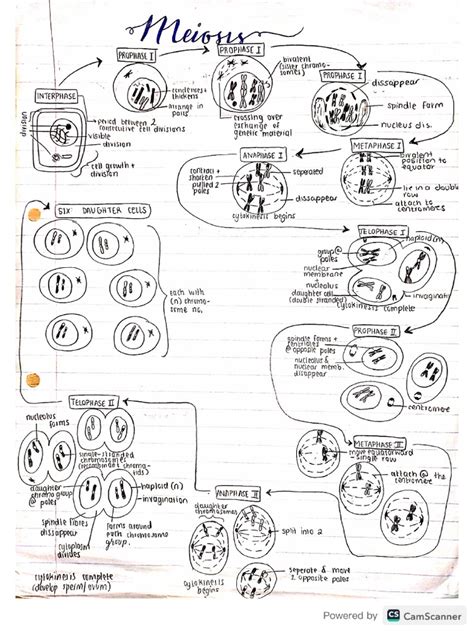 Meiosis
INTERPHASE
division
period between 2
consecutive cell divisions
visible
division
cell growth +
division
PROPHASE I
condenses +
thickens
arrange in
pairs
PROPHASE I
bivalent
(sister chromo-
somes)
crossing over
exchange of
genetic material
PROPHASE I
dissappear
spindle form
nucleus dis.
METAPHASE I
bivalent
position to
equator
lie in a double
row
attach to
centromeres
ANAPHASE I
contract +
shorten
pulled 2
poles
seperated
dissappear
cytokinesis begins
TELOPHASE I
haploid (n)
group @
poles
nuclear
membrane
+
nucleolus
daughter cell
(double stranded)
invagination
cytokinesis complete
PROPHASE II
spindle forms +
centrioles
@ opposite poles
nucleolus &
nuclear memb.
disappear
centromere
METAPHASE II
move equatorward
- single row
attach @ the
centromere
ANAPHASE II
daughter
chromosomes
split into 2
seperate & move
2 opposite poles
cytokinesis
begins
TELOPHASE II
nucleolus
forms
single-stranded
chromosomes
(recombinant chroma-
tids)
daughter
chromo group
@ poles
haploid (n)
invagination
spindle fibres
dissappear
forms around
each chromosome
group.
cytoplasm
divides
cytokinesis complete
(develop sperm/ovum)
SIX DAUGHTER CELLS
each with
(n) chromo-
some no.
Powered by CS CamScanner